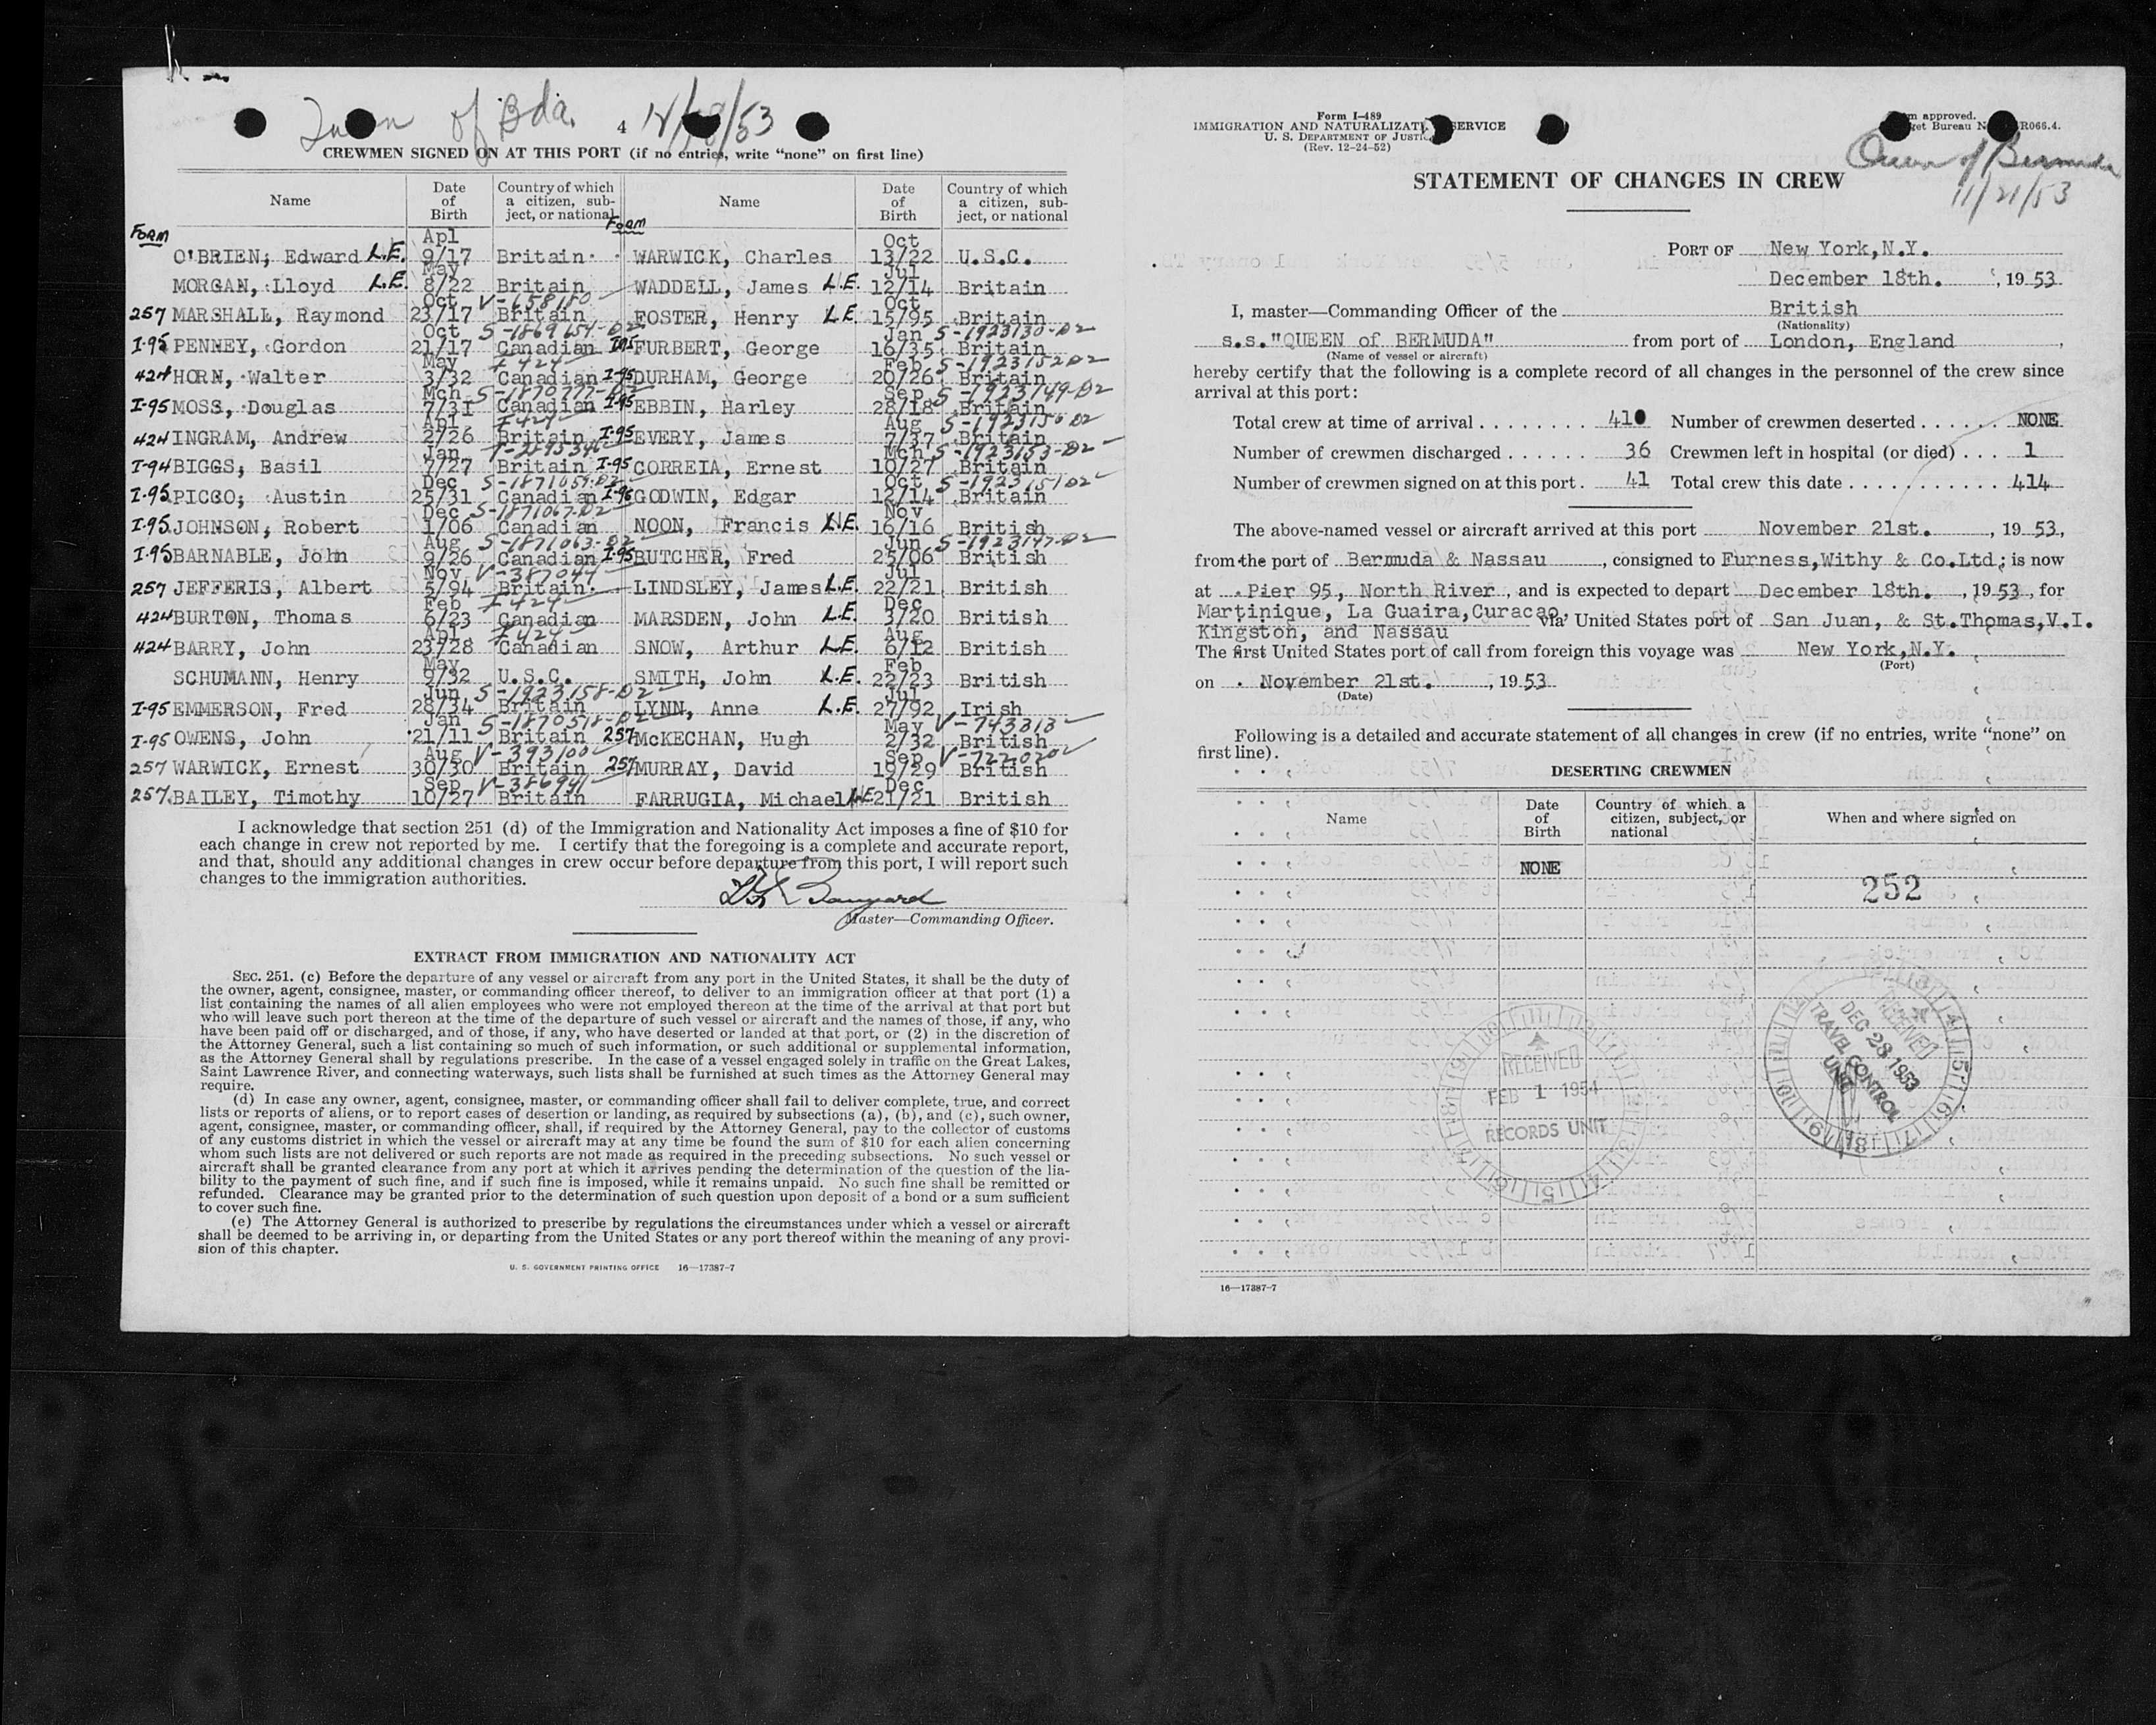 Queen of Bda. 4 12/18/53
CREWMEN SIGNED ON AT THIS PORT (if no entries, write “none” on first line)
Name Date of Birth Country of which a citizen, subject, or national Name Date of Birth Country of which a citizen, subject, or national
FORM Form
O'BRIEN, Edward L.E. Apl 9/17 Britain WARWICK, Charles Oct 13/22 U.S.C.
MORGAN, Lloyd L.E. May 8/22 Britain WADDELL, James L.E. Jul 12/14 Britain
257 MARSHALL, Raymond Oct 23/17 V-658180 Britain FOSTER, Henry L.E. Oct 15/95 Britain
I-95 PENNEY, Gordon Oct 21/17 S-1869654-D2 Canadian I-95 FURBERT, George Jan 16/35 S-1923130-D2 Britain
424 HORN, Walter May 3/32 F 424 Canadian I-95 DURHAM, George Feb 20/26 S-1923152 D2 Britain
I-95 MOSS, Douglas Mch 7/31 S-1870777-D2 Canadian I-95 EBBIN, Harley Sep 28/18 S-1923149-D2 Britain
424 INGRAM, Andrew Apl 2/26 F 424 Britain I-95 EVERY, James Aug 7/37 S-1923150 D2 Britain
I-94 BIGGS, Basil Jan 7/27 T-2895346 Britain I-95 CORREIA, Ernest Mch 10/27 S-1923153-D2 Britain
I-95 PICCO, Austin Dec 25/31 S-1871059-D2 Canadian I-95 GODWIN, Edgar Oct 12/14 S-1923151 D2 Britain
I-95 JOHNSON, Robert Dec 1/06 S-1871067-D2 Canadian NOON, Francis L.E. Nov 16/16 British
I-95 BARNABLE, John Aug 9/26 S-1871063-D2 Canadian I-95 BUTCHER, Fred Jun 25/06 S-1923147-D2 British
257 JEFFERIS, Albert Nov 5/94 V-387044 Britain LINDSLEY, James L.E. Jul 22/21 British
424 BURTON, Thomas Feb 6/23 F 424 Canadian MARSDEN, John L.E. Dec 3/20 British
424 BARRY, John Apl 23/28 F 424 Canadian SNOW, Arthur L.E. Aug 6/12 British
SCHUMANN, Henry May 9/32 U.S.C. SMITH, John L.E. Feb 22/23 British
I-95 EMMERSON, Fred Jun 28/34 S-1923158-D2 Britain LYNN, Anne L.E. Jul 27/92 Irish
I-95 OWENS, John Jan 21/11 S-1870518-D2 Britain 257 McKECHAN, Hugh May 2/32 V-743313 British
257 WARWICK, Ernest Aug 30/30 V-393100 Britain 257 MURRAY, David Sep 19/29 V-722020 British
257 BAILEY, Timothy Sep 10/27 V-386941 Britain FARRUGIA, Michael L.E. Dec 21/21 British
I acknowledge that section 251 (d) of the Immigration and Nationality Act imposes a fine of $10 for
each change in crew not reported by me. I certify that the foregoing is a complete and accurate report,
and that, should any additional changes in crew occur before departure from this port, I will report such
changes to the immigration authorities.
Master—Commanding Officer.
EXTRACT FROM IMMIGRATION AND NATIONALITY ACT
SEC. 251. (c) Before the departure of any vessel or aircraft from any port in the United States, it shall be the duty of
the owner, agent, consignee, master, or commanding officer thereof, to deliver to an immigration officer at that port (1) a
list containing the names of all alien employees who were not employed thereon at the time of the arrival at that port but
who will leave such port thereon at the time of the departure of such vessel or aircraft and the names of those, if any, who
have been paid off or discharged, and of those, if any, who have deserted or landed at that port, or (2) in the discretion of
the Attorney General, such a list containing so much of such information, or such additional or supplemental information,
as the Attorney General shall by regulations prescribe. In the case of a vessel engaged solely in traffic on the Great Lakes,
Saint Lawrence River, and connecting waterways, such lists shall be furnished at such times as the Attorney General may
require.
(d) In case any owner, agent, consignee, master, or commanding officer shall fail to deliver complete, true, and correct
lists or reports of aliens, or to report cases of desertion or landing, as required by subsections (a), (b), and (c), such owner,
agent, consignee, master, or commanding officer, shall, if required by the Attorney General, pay to the collector of customs
of any customs district in which the vessel or aircraft may at any time be found the sum of $10 for each alien concerning
whom such lists are not delivered or such reports are not made as required in the preceding subsections. No such vessel or
aircraft shall be granted clearance from any port at which it arrives pending the determination of the question of the lia-
bility to the payment of such fine, and if such fine is imposed, while it remains unpaid. No such fine shall be remitted or
refunded. Clearance may be granted prior to the determination of such question upon deposit of a bond or a sum sufficient
to cover such fine.
(e) The Attorney General is authorized to prescribe by regulations the circumstances under which a vessel or aircraft
shall be deemed to be arriving in, or departing from the United States or any port thereof within the meaning of any provi-
sion of this chapter.
U. S. GOVERNMENT PRINTING OFFICE 16—17387-7
Form I-489
IMMIGRATION AND NATURALIZATION SERVICE
U. S. DEPARTMENT OF JUSTICE
(Rev. 12-24-52)
approved.
Bureau R066.4.
Queen of Bermuda
11/21/53
STATEMENT OF CHANGES IN CREW
PORT OF New York,N.Y.
December 18th. , 19 53
I, master—Commanding Officer of the British
(Nationality)
s.s."QUEEN of BERMUDA" from port of London, England ,
(Name of vessel or aircraft)
hereby certify that the following is a complete record of all changes in the personnel of the crew since
arrival at this port:
Total crew at time of arrival . . . . . . . . 410 Number of crewmen deserted . . . . . . NONE
Number of crewmen discharged . . . . . . 36 Crewmen left in hospital (or died) . . . 1
Number of crewmen signed on at this port . 41 Total crew this date . . . . . . . . . . . . 414
The above-named vessel or aircraft arrived at this port November 21st. , 19 53,
from the port of Bermuda & Nassau , consigned to Furness,Withy & Co.Ltd; is now
at Pier 95, North River , and is expected to depart December 18th. , 19 53 , for
Martinique, La Guaira,Curacao,
Kingston, and Nassau via United States port of San Juan, & St.Thomas,V.I.
The first United States port of call from foreign this voyage was New York,N.Y.
(Port)
on November 21st. , 19 53
(Date)
Following is a detailed and accurate statement of all changes in crew (if no entries, write “none” on
first line).
DESERTING CREWMEN
Name Date of Birth Country of which a citizen, subject, or national When and where signed on
NONE
252
RECEIVED
DEC 28 1953
TRAVEL CONTROL
UNIT
RECEIVED
FEB 1 1954
RECORDS UNIT
16—17387-7